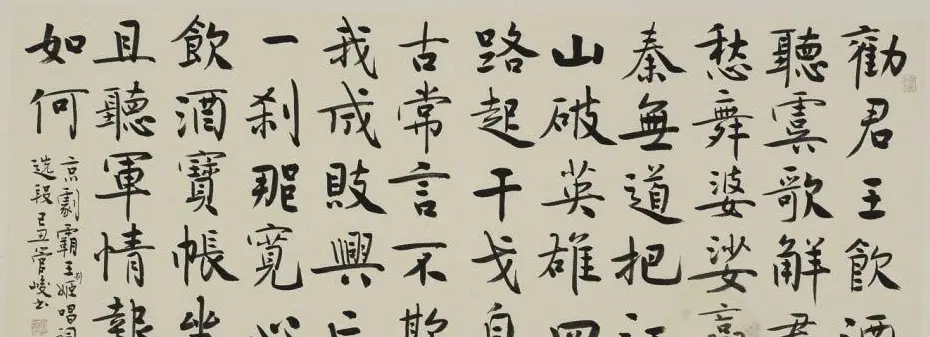 勸君王飲酒
聽虞歌解君
愁舞婆娑嬴
秦無道把江
山破英雄四
路起干戈自
古常言不欺
我成敗興亡
一刹那寬心
飲酒寶帳坐
且聽軍情報
如何
京劇霸王别姬唱詞
选段己丑管峻书